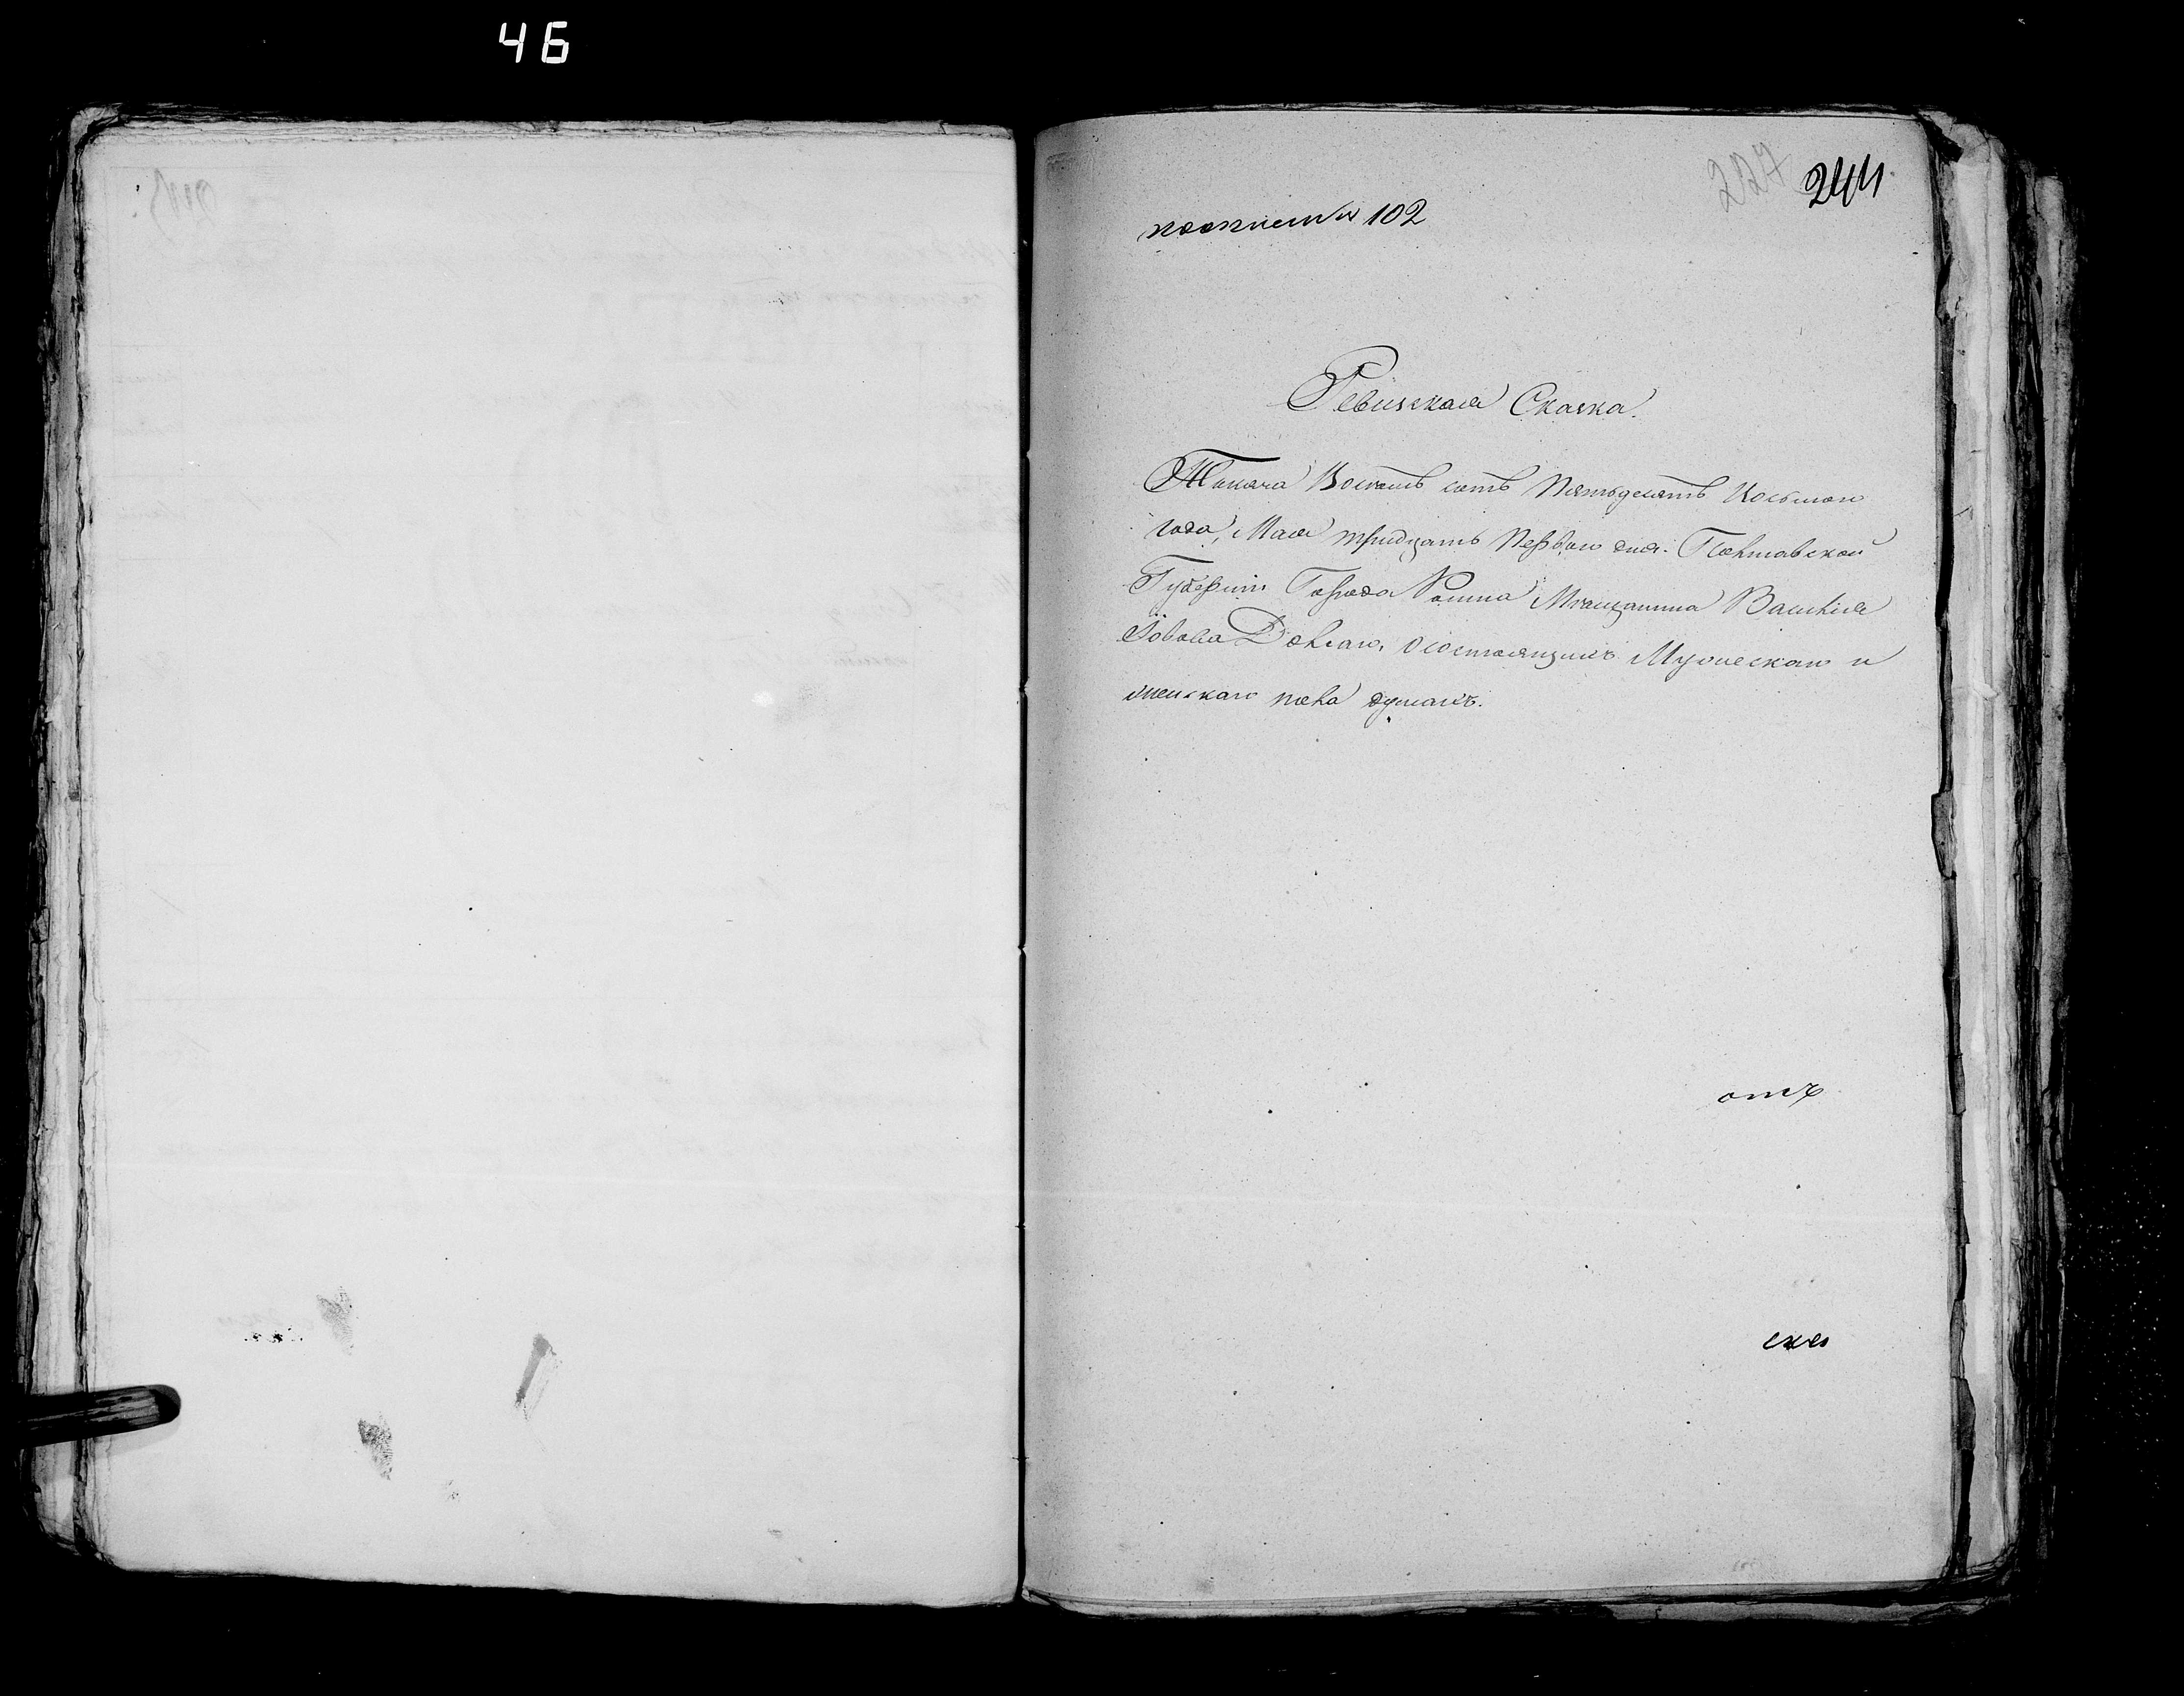 46
227 244
по описи № 102
Ревизская Сказка.
Тысяча Восемь сотъ Пятьдесятъ Восьмого
года, Мая тридцать Первого дня. Полтавской
Губерніи Города Ромна Мѣщанина Василія
Іовова Долгаго, о состоящихъ Мужескаго и
женскаго пола душахъ.